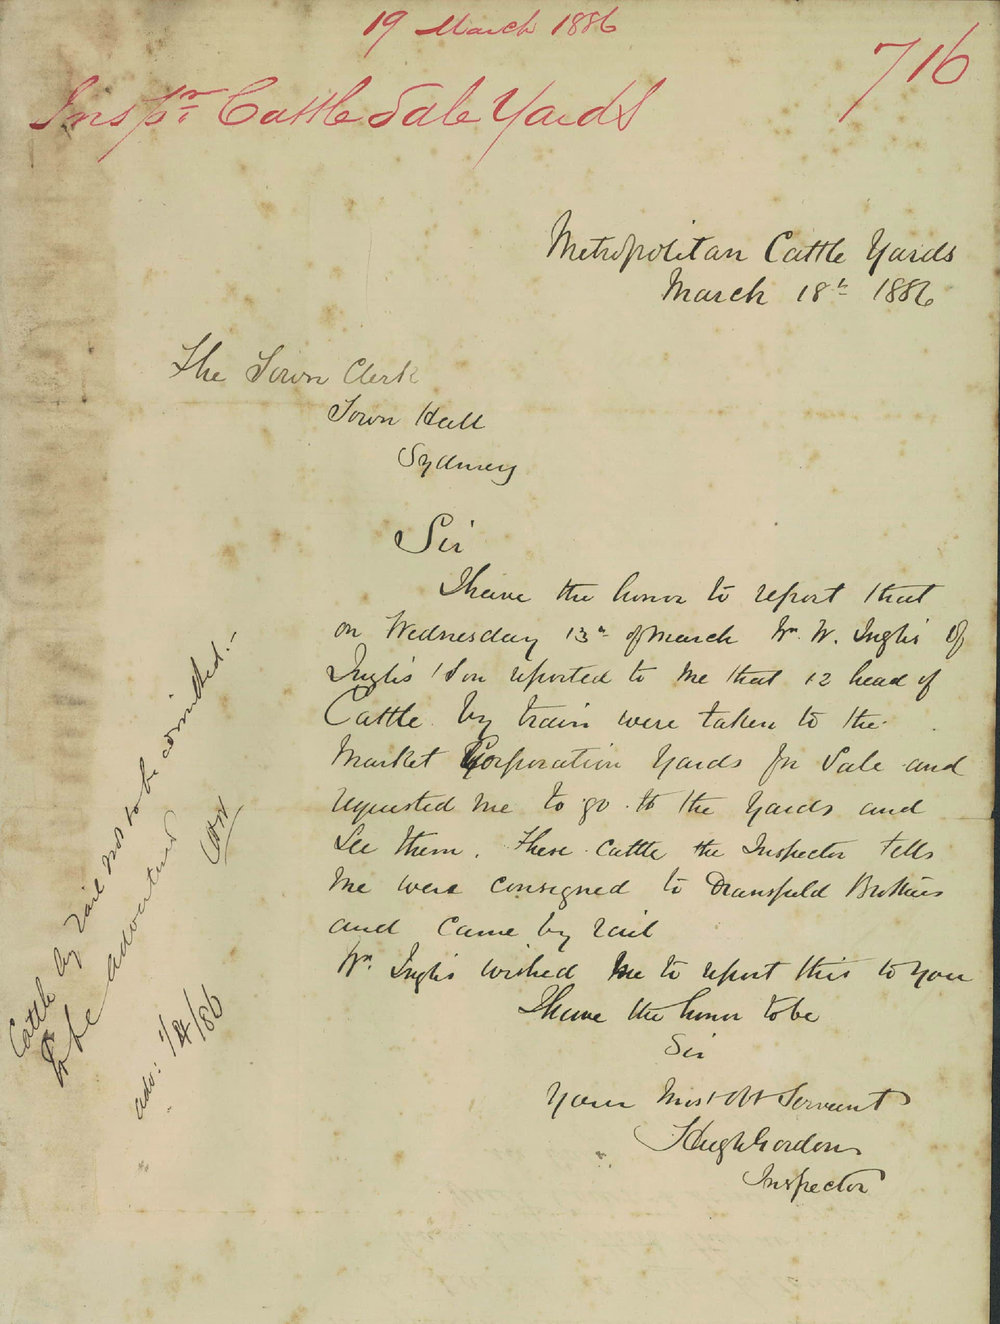 19 March 1886
716
Inspr. Cattle Sale Yards
Metropolitan Cattle Yards
March 18th 1886
The Town Clerk
Town Hall
Sydney
Sir
I have the honor to report that
on Wednesday 13th of March Mr. W. Inglis of
Inglis & Son reported to me that 12 head of
Cattle by train were taken to the
Market Corporation Yards for Sale and
requested me to go to the Yards and
See them. These cattle the Inspector tells
me were consigned to Dransfield Brothers
and came by rail
Mr. Inglis wished me to report this to you
I have the honor to be
Sir
Your Most Obt Servant
Hugh Gordon
Inspector
Cattle by rail not to be admitted.-
to be advertised
adv: 1/4/86